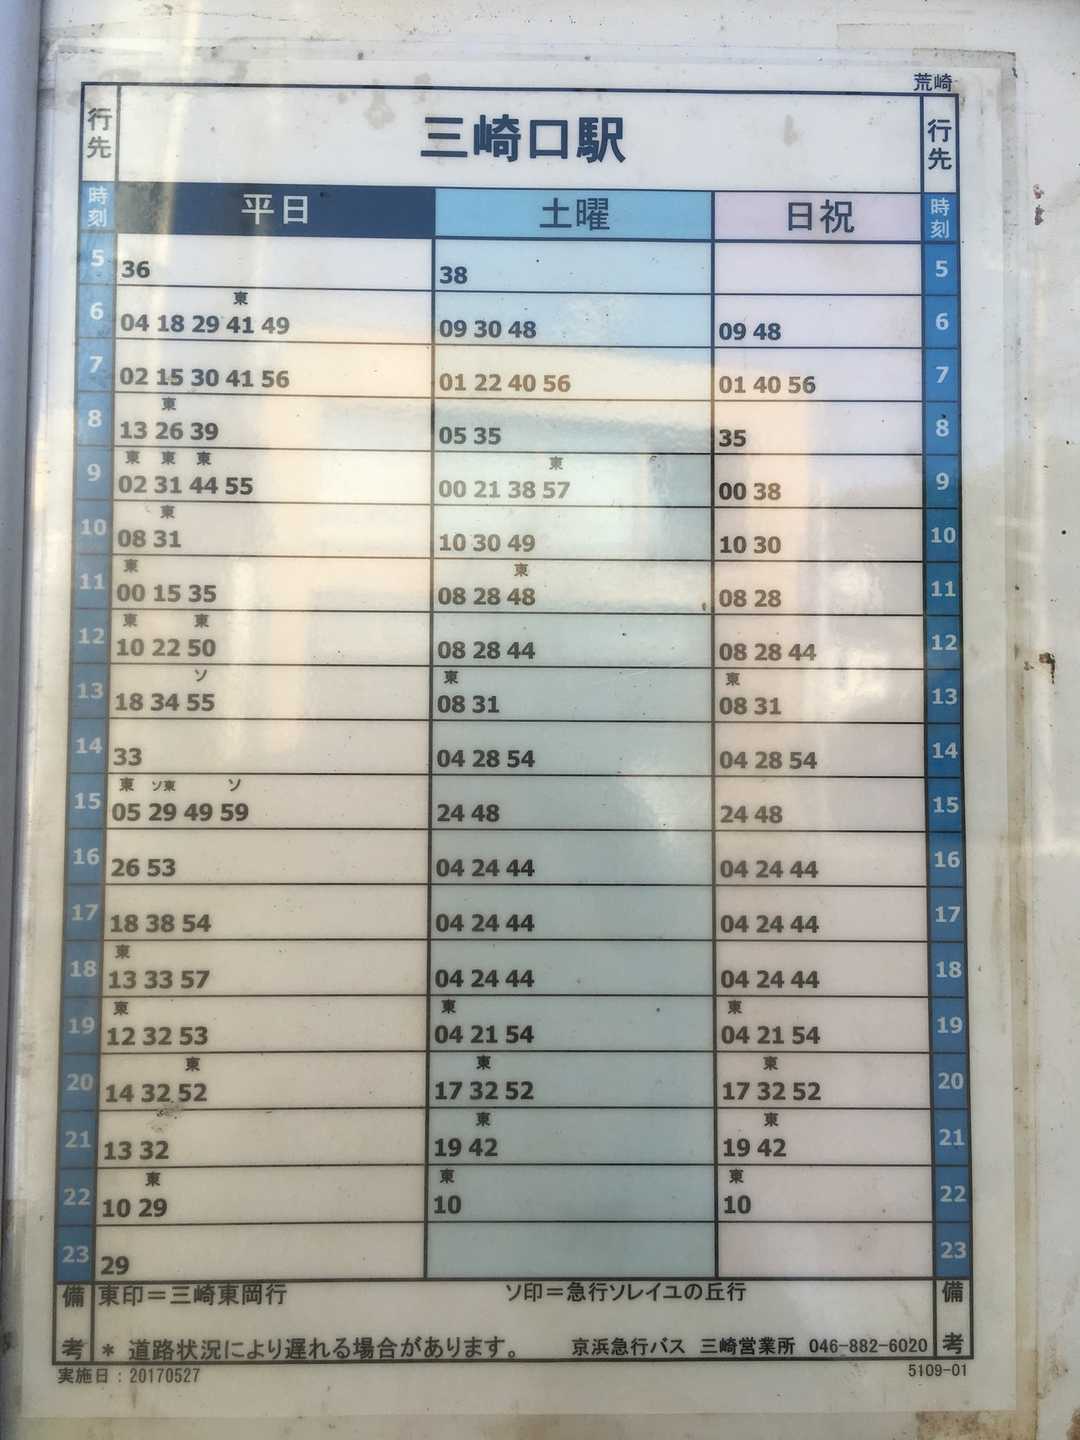 荒崎
行先 三崎口駅 行先
時刻 平日 土曜 日祝 時刻
5 36 38 5
東
6 04 18 29 41 49 09 30 48 09 48 6
7 02 15 30 41 56 01 22 40 56 01 40 56 7
東
8 13 26 39 05 35 35 8
東 東 東 東
9 02 31 44 55 00 21 38 57 00 38 9
東
10 08 31 10 30 49 10 30 10
東 東
11 00 15 35 08 28 48 08 28 11
東 東
12 10 22 50 08 28 44 08 28 44 12
ソ 東 東
13 18 34 55 08 31 08 31 13
14 33 04 28 54 04 28 54 14
東 ソ東 ソ
15 05 29 49 59 24 48 24 48 15
16 26 53 04 24 44 04 24 44 16
17 18 38 54 04 24 44 04 24 44 17
東
18 13 33 57 04 24 44 04 24 44 18
東 東 東
19 12 32 53 04 21 54 04 21 54 19
東 東 東
20 14 32 52 17 32 52 17 32 52 20
東 東
21 13 32 19 42 19 42 21
東 東 東
22 10 29 10 10 22
23 29 23
備考 東印＝三崎東岡行 ソ印＝急行ソレイユの丘行 備考
＊ 道路状況により遅れる場合があります。 京浜急行バス 三崎営業所 046-882-6020
実施日：20170527 5109-01